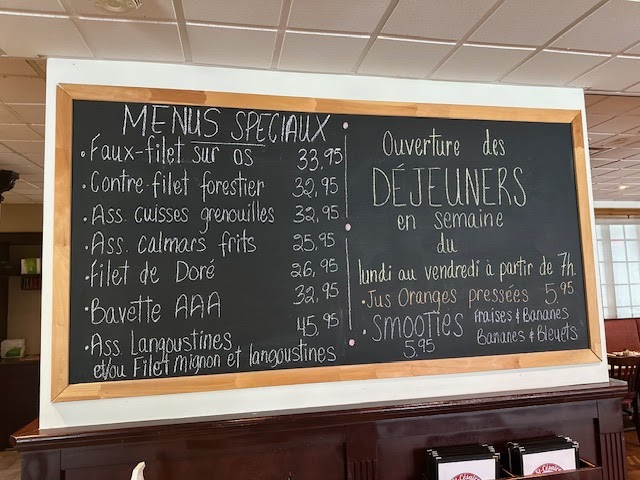 MENUS SPECIAUX
• Faux-filet sur os 33,95
• Contre-filet forestier 32,95
• Ass. cuisses grenouilles 32,95
• Ass. calmars frits 25,95
• Filet de Doré 26,95
• Bavette AAA 32,95
• Ass Langoustines 45,95
et/ou Filet mignon et langoustines
Ouverture des
DÉJEUNERS
en semaine
du
lundi au vendredi à partir de 7h.
• Jus Oranges pressées 5.95
• SMOOTIES Fraises & Bananes
5.95 Bananes & Bleuets